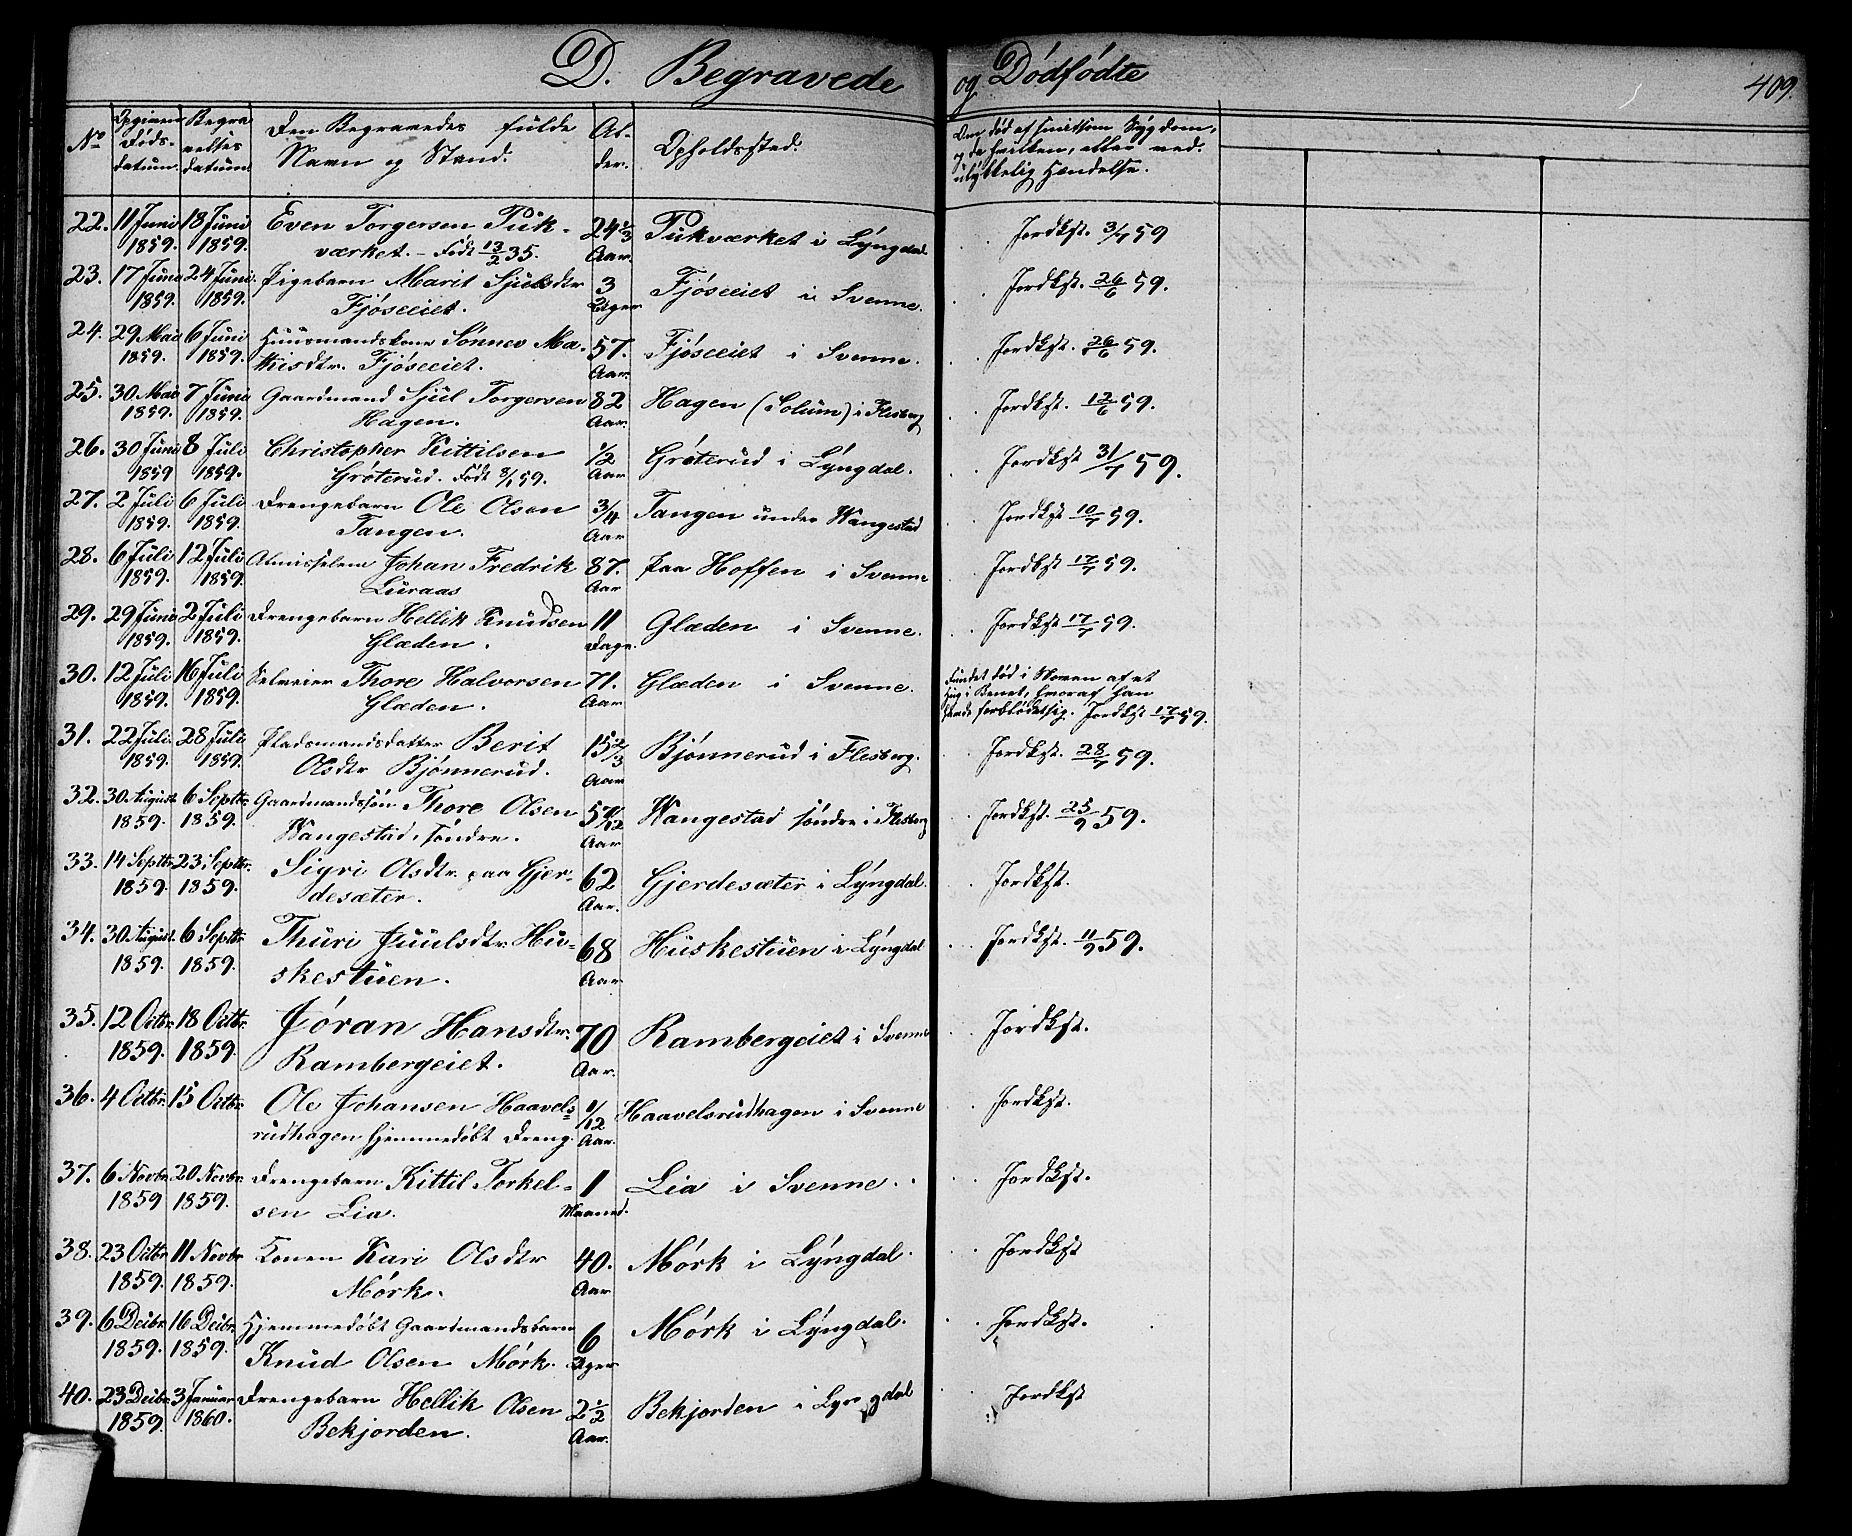 D. Begravede og Dødfødte 409.
No Opgiven Døds-datum. Begravelses datum. Den Begravedes fulde Navn og Stand. Alder. Opholdssted. Om død af smitsom Sygdom, og da hvilken, eller ved ulykkelig Hændelse.
22. 11 Juni 18 Juni Even Torgersen Tuk- 24 1/3 Tukværket i Lyngdal Jordkst. 3/7 59
1859. 1859. værket. - Født 13/2 35. Aar.
23. 17 Juni 24 Juni Pigebarn Marit Sjulsdtr 3 Fjøseeiet i Svenne. Jordkst. 26/6 59.
1859. 1859. Fjøseeiet. Uger
24. 29 Mai 6 Juni Huusmandskone Sønnev Ma- 57. Fjøseeiet i Svenne. Jordkst. 26/6 59.
1859. 1859. thisdtr. Fjøseeiet. Aar.
25. 30 Mai 7 Juni Gaardmand Sjul Torgersen 82 Hagen (Solum) i Flesberg Jordkst. 12/6 59.
1859. 1859. Hagen. Aar.
26. 30 Juni 8 Juli Christopher Kittilsen 1/2 Grøterud i Lyngdal. Jordkst 31/7 59.
1859 1859. Grøterud. Født 8/1 59. Aar
27. 2 Juli 6 Juli Drengebarn Ole Olsen 3/4 Tangen under Wangestad Jordkst 10/7 59.
1859. 1859. Tangen. Aar
28. 6 Juli 12 Juli Almisselem Johan Fredrik 87. paa Hoffen i Svenne Jordkst 17/7 59.
1859. 1859. Luraas Aar
29. 29 Juni 2 Juli Drengebarn Hellik Knudsen 11 Glæden i Svenne. Jordkst 17/7 59.
1859. 1859. Glæden. Dage.
30. 12 Juli 16 Juli Selveier Thore Halvorsen 71. Glæden i Svenne. Fundet død i Skoven af et
1859. 1859. Glæden. Aar. Hug i Benet, hvoraf han
havde forblødet sig. Jordkst 17/7 59.
31. 22 Juli 28 Juli Pladsmandsdatter Berit 15 2/3 Bjønnerud i Flesberg. Jordkst. 28/7 59.
1859. 1859. Olsdtr Bjønnerud. Aar
32. 30 August 6 Septbr. Gaardmandssøn Thore Olsen 57 Wangestad søndre i Flesberg Jordkst. 25/9 59.
1859. 1859. Wangestad, søndre. Aar
33. 14 Septbr. 23 Septbr. Sigri Olsdtr. paa Gjer- 62 Gjerdesæter i Lyngdal. Jordkst.
1859. 1859. desæter. Aar.
34. 30 August. 6 Septbr Thuri Juulsdtr. Hu- 68 Huskestuen i Lyngdal Jordkst. 11/9 59.
1859. 1859. skestuen. Aar
35. 12 Octbr. 18 Octbr. Jøran Hansdtr. 70 Rambergeiet i Svenne Jordkst.
1859. 1859. Rambergeiet. Aar.
36. 4 Octbr. 15 Octbr. Ole Johansen Haavels- 1/12 Haavelsrudhagen i Svenne Jordkst.
rudhagen hjemmedøbt Dreng. Aar.
37. 6 Novbr. 20 Novbr. Drengebarn Kittil Torkel- 1 Lia i Svenne. Jordkst.
1859 1859. sen Lia. Maaned.
38. 23 Octbr 11 Novbr Konen Kari Olsdtr 40. Mørk i Lyngdal. Jordkst
1859. 1859. Mørk. Aar
39. 6 Decbr. 16 Decbr. Hjemmedøbt Gaardmandsbarn 6 Mørk i Lyngdal. Jordkst.
1859. 1859. Knud Olsen Mørk. Uger
40. 23 Decbr. 3 Januar Drengebarn Hellik Olsen 2 1/2 Bekjorden i Lyngdal Jordkst
1859. 1860. Bekjorden. Aar.